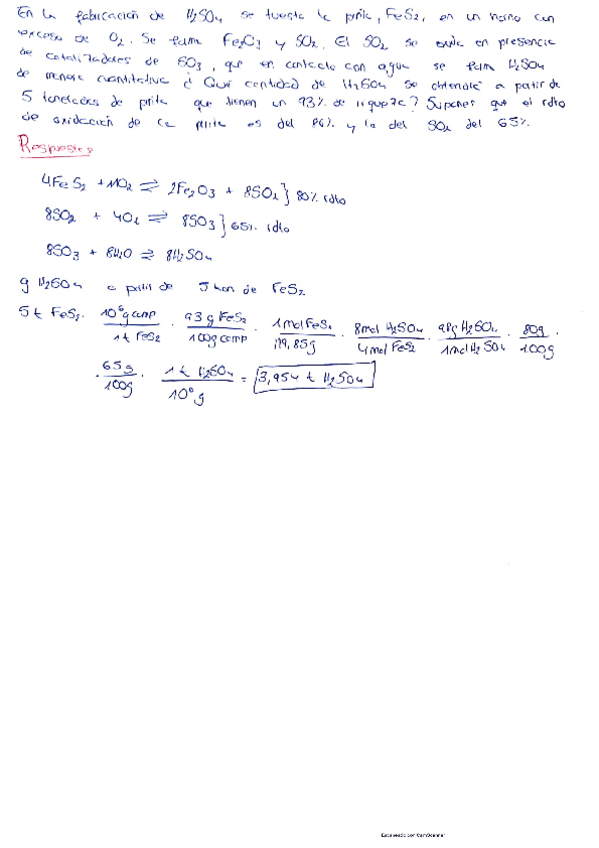 En la fabricación de H₂SO₄ se tuesta la pirita, FeS₂, en un horno con
exceso de O₂. Se forma Fe₂O₃ y SO₂. El SO₂ se oxida en presencia
de catalizadores de SO₃, que en contacto con agua se forma H₂SO₄
de manera cuantitativa ¿ Qué cantidad de H₂SO₄ se obtendrá a partir de
5 toneladas de pirita que tienen un 93% de riqueza? Suponer que el rdto
de oxidación de la pirita es del 80% y la del SO₂ del 65%.
Respuesta
4FeS₂ + 11O₂ ⇌ 2Fe₂O₃ + 8SO₂ } 80% rdto
8SO₂ + 4O₂ ⇌ 8SO₃ } 65% rdto
8SO₃ + 8H₂O ⇌ 8H₂SO₄
g H₂SO₄ a partir de 5 ton de FeS₂
5 t FeS₂ · 10⁶ g comp / 1 t FeS₂ · 93 g FeS₂ / 100g comp · 1 mol FeS₂ / 119,85g · 8mol H₂SO₄ / 4mol FeS₂ · 98g H₂SO₄ / 1mol H₂SO₄ · 80g / 100g ·
· 65g / 100g · 1 t H₂SO₄ / 10⁶ g = 3,954 t H₂SO₄
Escaneado por CamScanner